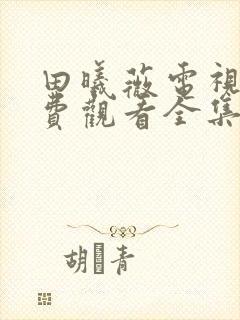 田曦薇電視
費觀看全集
胡青